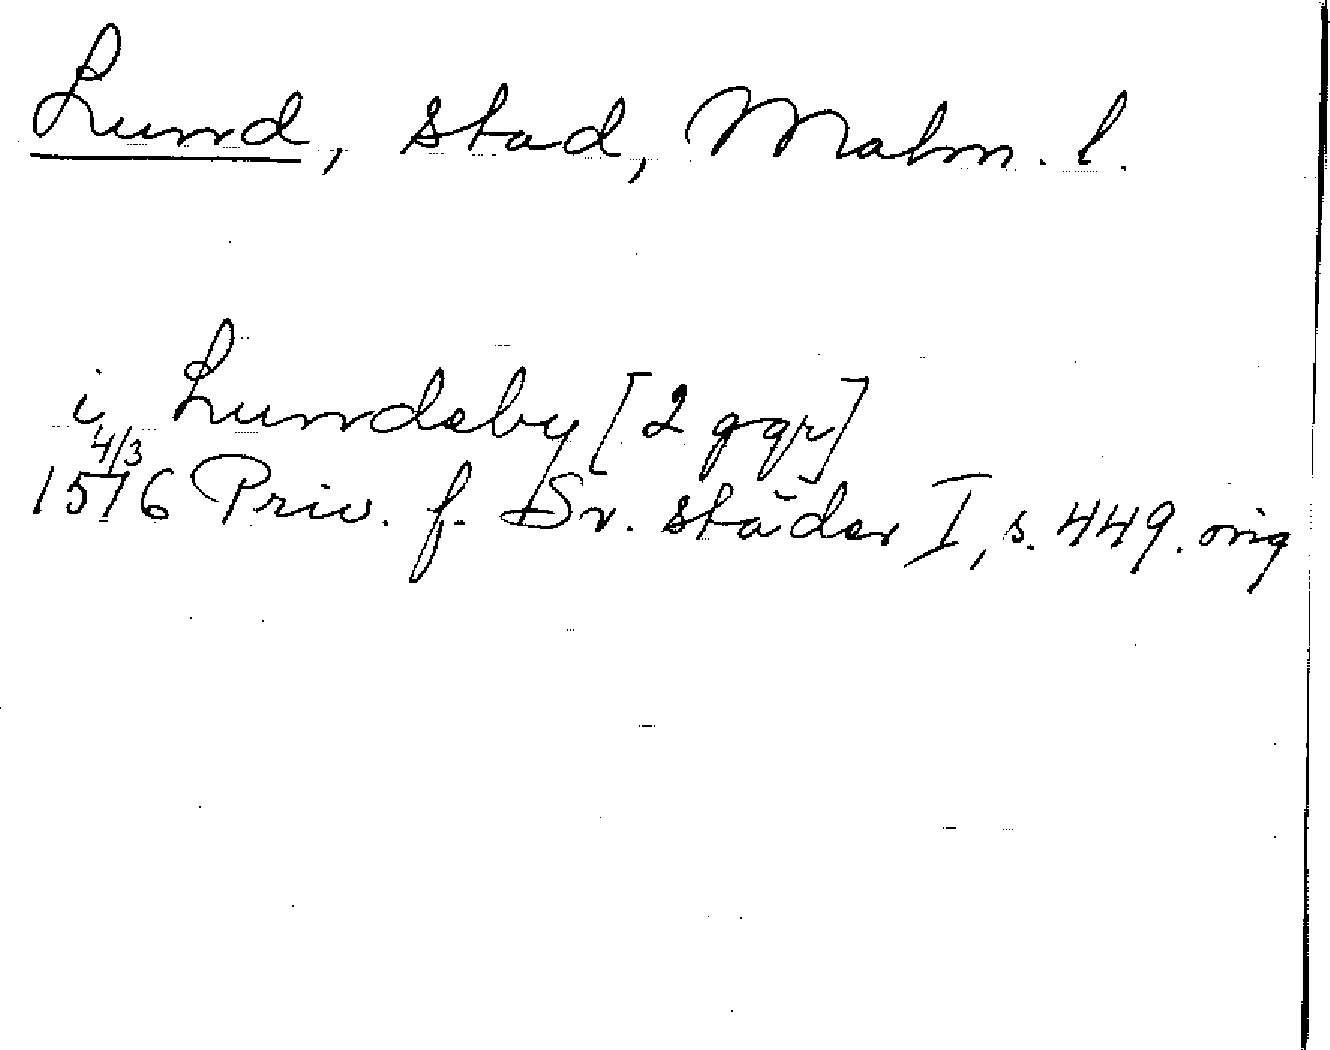 Lund, stad, Malm. l.
i Lundsby [2 ggr]
4/3
1516 Priv. f. Sv. städer I, s. 449. orig